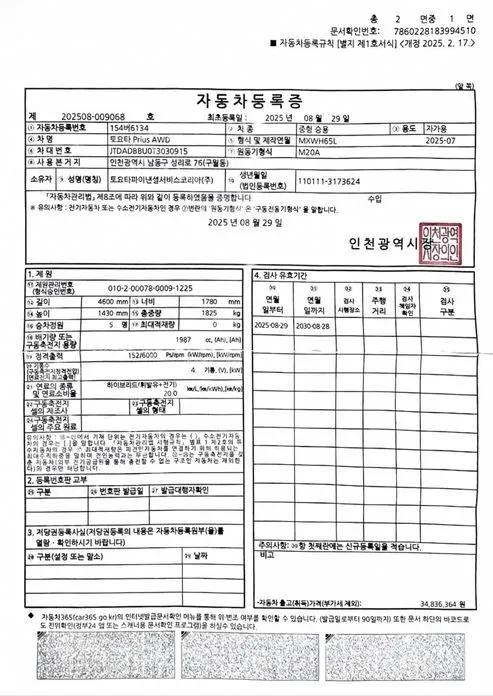 총 2 면중 1 면
문서확인번호: 7860228183994510
■ 자동차등록규칙 [별지 제1호서식] <개정 2025. 2. 17.>
(앞 쪽)
자동차등록증
제 202508-009068 호 최초등록일 : 2025 년 08 월 29 일
① 자동차등록번호 154버6134 ② 차 종 중형 승용 ③ 용도 자가용
④ 차 명 토요타 Prius AWD ⑤ 형식 및 제작연월 MXWH65L 2025-07
⑥ 차 대 번 호 JTDADBBU0T3030915 ⑦ 원동기형식 M20A
⑧ 사 용 본 거 지 인천광역시 남동구 성리로 76(구월동)
소유자 ⑨ 성명(명칭) 토요타파이낸셜서비스코리아(주) ⑩ 생년월일 (법인등록번호) 110111-3173624
「자동차관리법」제8조에 따라 위와 같이 등록하였음을 증명합니다. 수입
※ 유의사항 : 전기자동차 또는 수소전기자동차인 경우 ⑦번란의 '원동기형식' 은 '구동전동기형식' 을 말합니다.
2025 년 08 월 29 일
인천광역시장
인천광역
시장의인
1. 제 원
⑪ 제원관리번호 (형식승인번호) 010-2-00078-0009-1225
⑫ 길이 4600 mm ⑬ 너비 1780 mm
⑭ 높이 1430 mm ⑮ 총중량 1825 kg
⑯ 승차정원 5 명 ⑰ 최대적재량 0 kg
⑱ 배기량 또는 구동축전지 용량 1987 cc, [Ah], {Ah}
⑲ 정격출력 152/6000 Ps/rpm (kW/rpm), [kW/rpm]
⑳ 기통수 (구동축전지정격전압) (연료전지 최고출력) 4 기통, (V), [kW]
㉑ 연료의 종류 및 연료소비율 하이브리드(휘발유+전기) 20.0 km/L, (km/kWh), [km/kg]
㉒ 구동축전지 셀의 제조사 ㉓ 구동축전지 셀의 형태
㉔ 구동축전지 셀의 주요 원료
2. 등록번호판 교부
㉕ 구분 ㉖ 번호판 발급일 ㉗ 발급대행자확인
3. 저당권등록사실(저당권등록의 내용은 자동차등록원부(을)를
열람ㆍ확인하시기 바랍니다)
㉘ 구분(설정 또는 말소) ㉙ 날짜
4. 검사 유효기간
㉚ 연월일부터 ㉛ 연월일까지 ㉜ 검사 시행장소 ㉝ 주행거리 ㉞ 검사 책임자 확인 ㉟ 검사 구분
2025-08-29 2030-08-28
주의사항: ㉚항 첫째란에는 신규등록일을 적습니다.
비고
-자동차 출고(취득)가격(부가세 제외): 34,836,364 원
◆ 자동차365(car365.go.kr)의 인터넷발급문서확인 메뉴를 통해 위·변조 여부를 확인할 수 있습니다. (발급일로부터 90일까지) 또한 문서 하단의 바코드로
도 진위확인(정부24 앱 또는 스캐너용 문서확인 프로그램)을 하실수 있습니다.